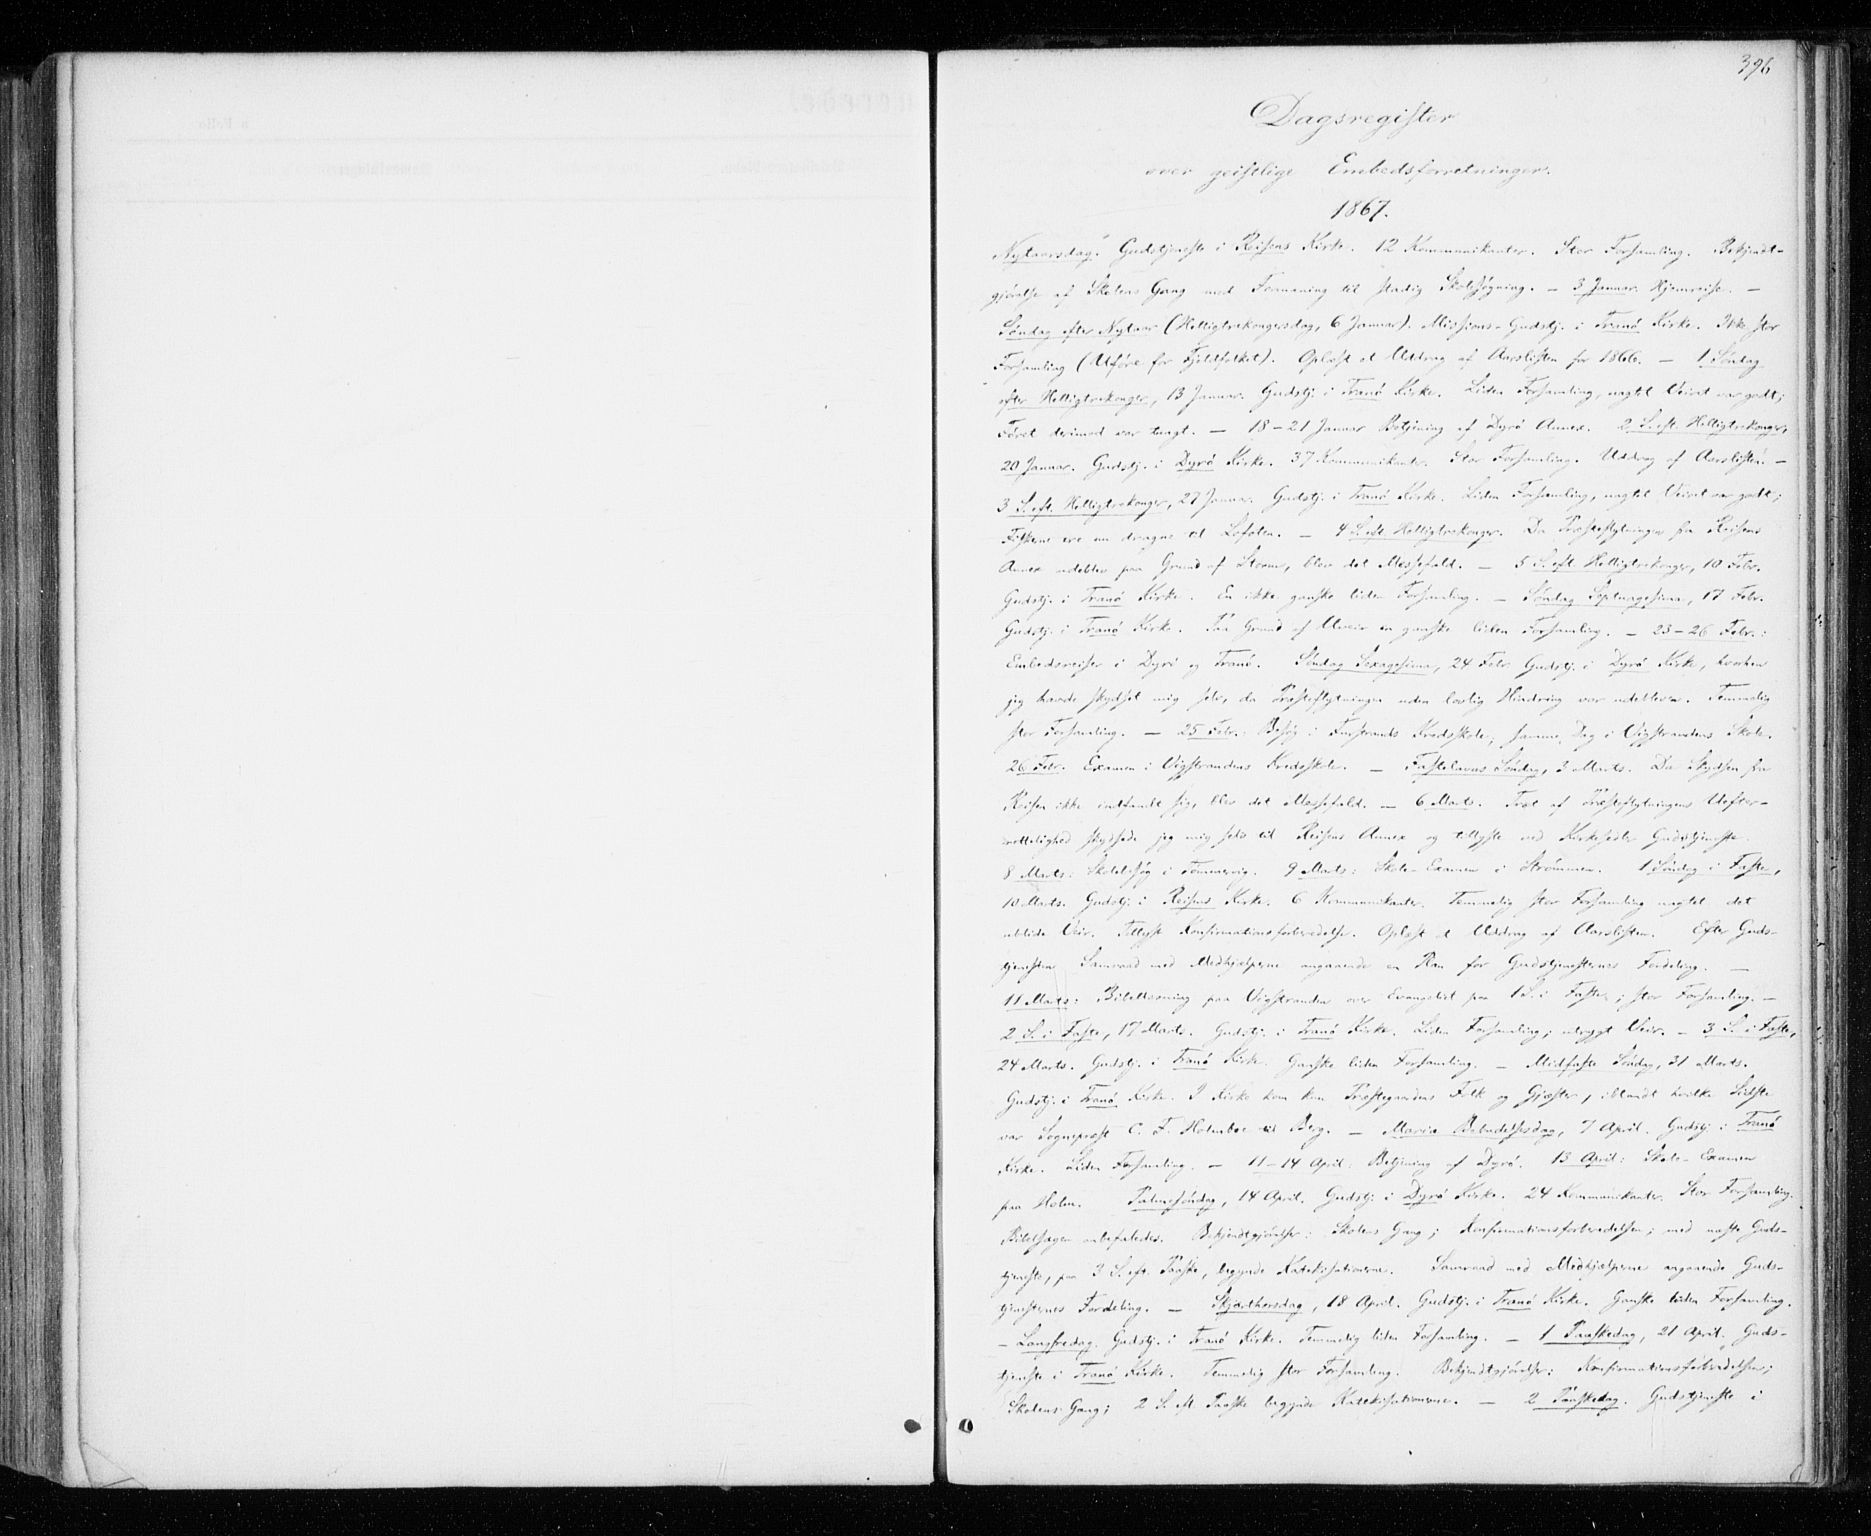 396
Dagsregister
over geistlige Embedsforretninger.
1867.
Nytaarsdag. Gudstjeneste i Reisens Kirke. 12 Kommunikanter. Stor Forsamling. Bekjendt-
gjørelse af Skolens Gang med Formaning til stadig Skolesøgning. – 3 Januar. Hjemreise. –
Søndag efter Nytaar (Helligtrekongersdag, 6 Januar). Missions-Gudstj. i Tranø Kirke. Ikke stor
Forsamling (Uføre for Fjeldfolket). Oplæst et Uddrag af Aarslisten for 1866. – 1 Søndag
efter Helligtrekonger, 13 Januar. Gudstj. i Tranø Kirke. Liden Forsamling, uagtet Veiret var godt;
Føret derimod var tungt. – 18-21 Januar Betjening af Dyrø Annex. 2 S. eft. Helligtrekonger,
20 Januar. Gudstj. i Dyrø Kirke. 37 Kommunikanter. Stor Forsamling. Uddrag af Aarslisten. –
3 S. eft. Helligtrekonger, 27 Januar. Gudstj. i Tranø Kirke. Liden Forsamling, uagtet Veiret var godt;
Fiskerne ere nu dragne til Lofoten. – 4 S. eft. Helligtrekonger. Da Præsteflytningen fra Reisens
Annex udeblev paa Grund af Storm, blev det Messefald. – 5 S. eft. Helligtrekonger, 10 Febr.
Gudstj. i Tranø Kirke. En ikke ganske liden Forsamling. – Søndag Septuagesima, 17 Febr.
Gudstj. i Tranø Kirke. Paa Grund af Uveir en ganske liden Forsamling. – 23-26 Febr.:
Embedsreiser i Dyrø og Tranø. Søndag Sexagesima, 24 Febr. Gudstj. i Dyrø Kirke, hvorhen
jeg havde skydset mig selv, da Præsteflytningen uden lovlig Hindring var udebleven. Temmelig
stor Forsamling. – 25 Febr.: Besøg i Kredsskole; samme Dag i Vigstrandens Skole.
26 Febr. Examen i Vigstrandens Kredsskole. – Fastelavns Søndag, 3 Marts. Da Skydsen fra
Reisen ikke indfandt sig, blev det Messefald. – 6 Marts. Træt af Præsteflytningens Uefter-
rettelighed skydsede jeg mig selv til Reisens Annex og tillyste ved Kirkesedler Gudstjeneste.
8 Marts: Skolebesøg i Tennevig. 9 Marts: Skole-Examen i Strømmen. 1 Søndag i Faste,
10 Marts. Gudstj. i Reisens Kirke. 6 Kommunikanter. Temmelig stor Forsamling uagtet det
ublide Veir. Tillyst Konfirmationsforberedelse. Oplæst et Uddrag af Aarslisten. Efter Guds-
tjenesten Samraad med Medhjælperne angaaende en Plan for Gudstjenesternes Fordeling. –
11 Marts: Bibellæsning paa Vigstranden over Evangeliet paa 1 S. i Faste; stor Forsamling. –
2 S. i Faste, 17 Marts. Gudstj. i Tranø Kirke. Liden Forsamling; utrygt Veir. – 3 S. i Faste,
24 Marts. Gudstj. i Tranø Kirke. Ganske liden Forsamling. – Midfaste Søndag, 31 Marts.
Gudstj. i Tranø Kirke. I Kirke kom kun Præstegaardens Folk og Gjæster, iblandt hvilke Sidste
var Sognepræst C. F. Holmboe til Berg. – Maria Bebudelsesdag, 7 April. Gudstj. i Tranø
Kirke. Liden Forsamling. – 11-14 April: Betjening af Dyrø. 13 April: Skole-Examen
paa Holm. Palmesøndag, 14 April. Gudstj. i Dyrø Kirke. 24 Kommunikanter. Stor Forsamling.
Bibelsagen anbefaledes. Bekjendtgjørelser: Skolens Gang; Konfirmationsforberedelsen; med næste Guds-
tjeneste, paa 3 S. eft. Paaske, begynde Katekisationerne. Samraad med Medhjælperne angaaende Guds-
tjenesternes Fordeling. – Skjærthorsdag, 18 April. Gudstj. i Tranø Kirke. Ganske liden Forsamling.
– Langfredag. Gudstj. i Tranø Kirke. Temmelig liden Forsamling. – 1 Paaskedag, 21 April. Guds-
tjeneste i Tranø Kirke. Temmelig stor Forsamling. Bekjendtgjørelser: Konfirmationsforberedelsen;
Skolens Gang; 2 S. eft. Paaske begynde Katekisationerne. – 2 Paaskedag. Gudstjeneste i